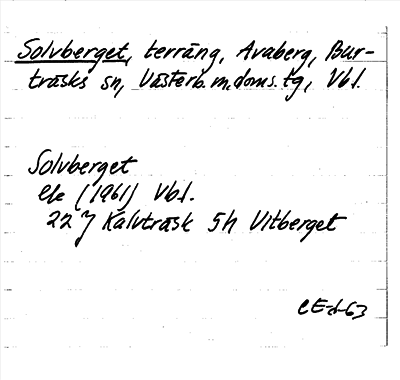 Solvberget, terräng, Avaberg, Bur-
träsks sn, Västerb.m.doms.tg, Vbl.
Solvberget
ek (1961) Vbl.
22 J Kalvträsk 5h Vitberget
CE-d-63